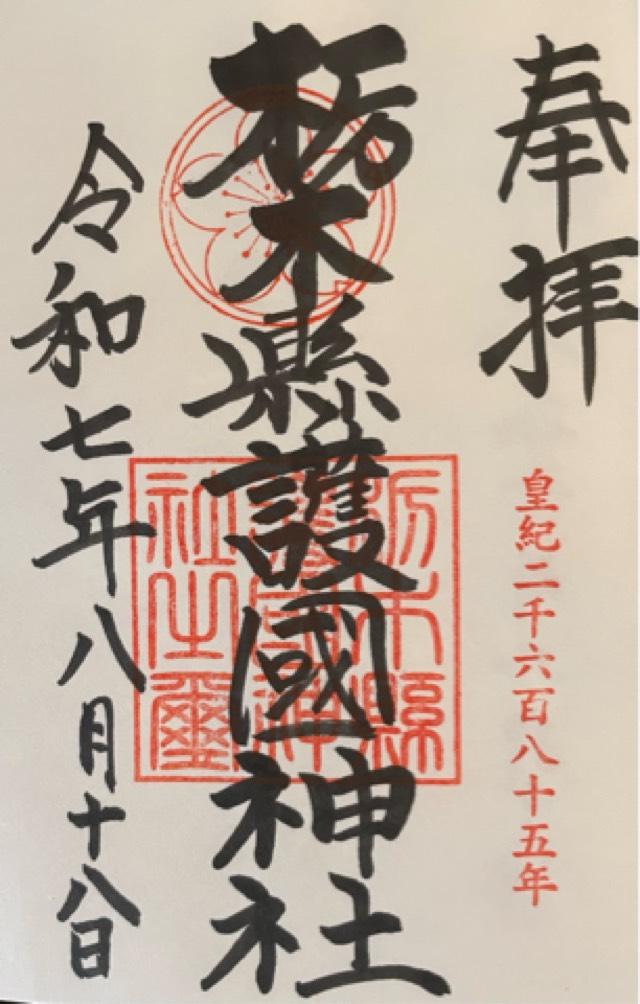 奉拝
皇紀二千六百八十五年
栃木縣護國神社
栃木縣護國神社之璽
令和七年八月十八日